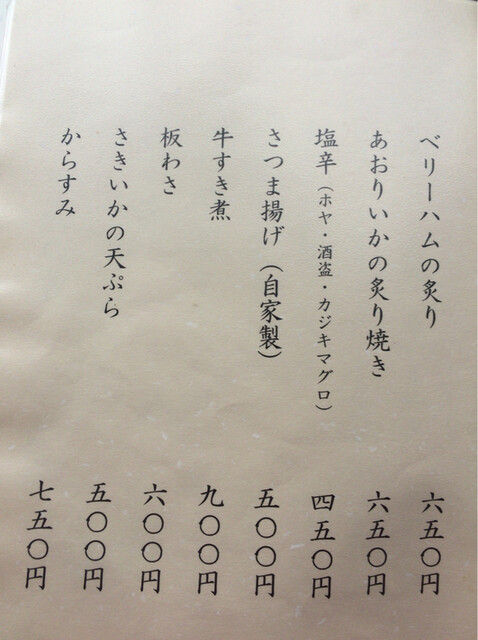 ベリーハムの炙り 六五〇円
あおりいかの炙り焼き 六五〇円
塩辛（ホヤ・酒盗・カジキマグロ） 四五〇円
さつま揚げ（自家製） 五〇〇円
牛すき煮 九〇〇円
板わさ 六〇〇円
さきいかの天ぷら 五〇〇円
からすみ 七五〇円